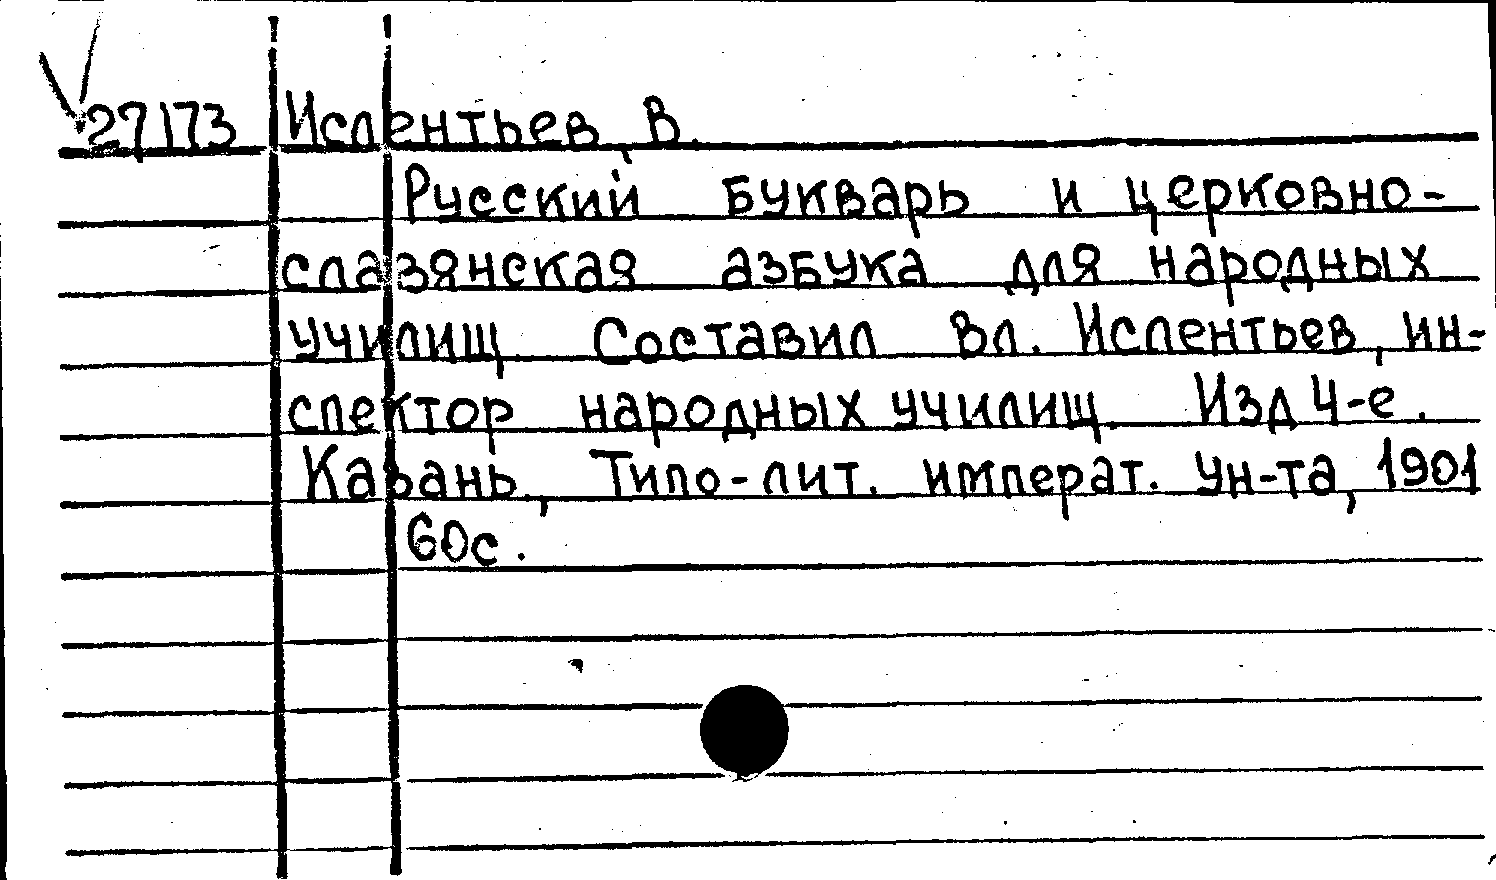 27173 Ислентьев, В.
Русский букварь и церковно-
славянская азбука для народных
училищ. Составил Вл. Ислентьев, ин-
спектор народных училищ. Изд 4-е.
Казань, Типо-лит. императ. ун-та, 1901
60с.